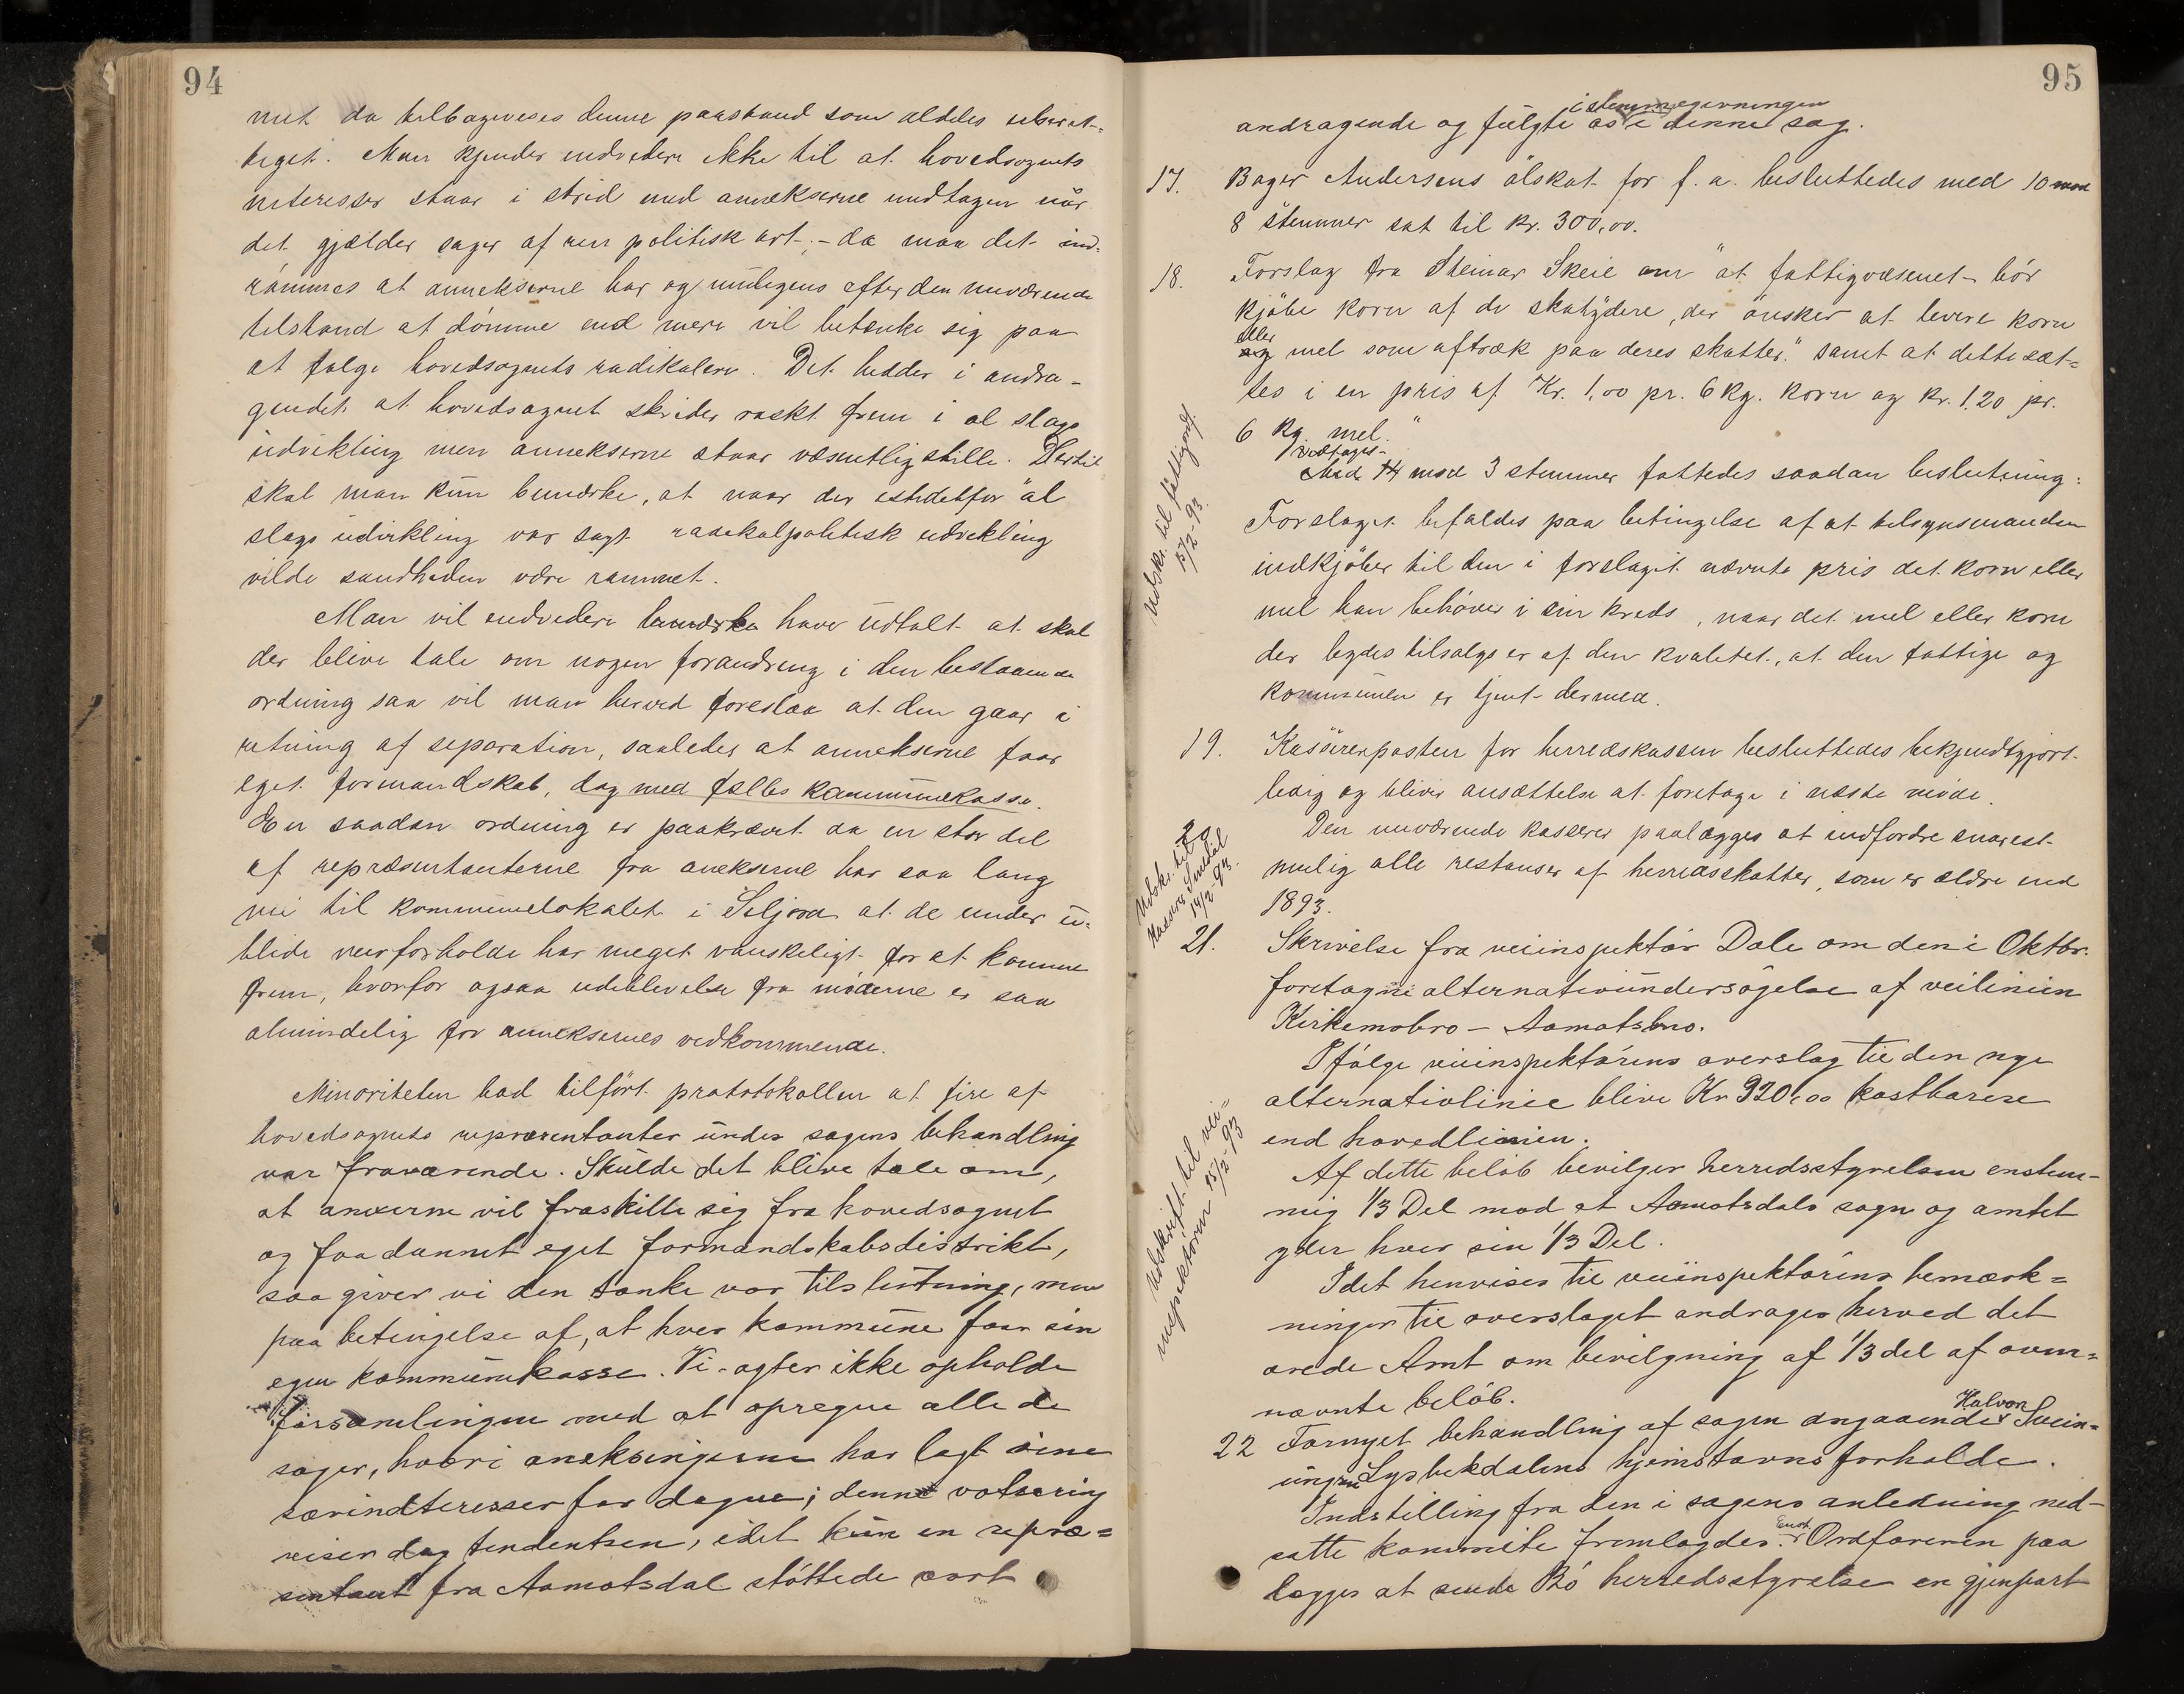 94
met da tilbageveses denne paastand som aldeles uberet-
tiget. Man kjender endvidere ikke til at hovedsognets
interesser staar i strid med annekserne undtagen når
det gjælder sager af ren politisk art; - da maa det ind-
rømmes at annekserne har og muligens efter den nuværende
tilstand at dömme end mere vil betænke sig paa
at følge hovedsognets radikalere. Det hedder i andra-
gendet at hovedsognet skrider raskt frem i al slags
udvikling men annekserne staar væsentlig stille. Hertil
skal man kun bemærke, at naar der istedetfor "al
slags udvikling var sagt radikalpolitisk udvikling
vilde sandheden være rammet.
Man vil endvidere have udtalt at skal
der blive tale om nogen forandring i den bestaaende
ordning saa vil man herved foreslaa at den gaar i
retning af separation, saaledes at annekserne faar
eget formandskab, dog med fælles kommunekasse.
En saadan ordning er paakrævet da en stor del
af repræsentanterne fra anekserne har saa lang
vei til kommunelokalet i Seljord at de under u-
blide veirforholde har meget vanskeligt for at komme
frem, hvorfor ogsaa udeblevelse fra möderne er saa
almindelig for anneksernes vedkommende.
Minoriteten bad tilfört protokollen at fire af
hovedsognets repræsentanter under sagens behandling
var fraværende. Skulde det blive tale om,
at anexerne vil fraskille sig fra hovedsognet
og faa dannet eget formandskabsdistrikt,
saa giver vi den tanke vor tilslutning, men
paa betingelse af, at hver kommune faar sin
egen kommunekasse. Vi agter ikke opholde
forsamlingen med at opregne alle de
sager, hvori aneksingerne har lagt sine
særindteresser for dagen; denne votering
viser dog tendentsen, idet kun en repræ=
sentant fra Aamotsdal støttede vort
95
i stemmegivningen
andragende og fulgte os i denne sag.
17. Bager Andersens ölskat for f. a. besluttedes med 10 mod
8 stemmer sat til kr. 300,00.
18. Forslag fra Steinar Skeie om "at fattigvæsenet bör
kjöbe korn af de skatydere, der önsker at levere korn
eller
og mel som aftræk paa deres skatter." samt at dette sæt-
tes i en pris af Kr. 1,00 pr. 6 kg. korn og kr. 1,20 pr.
6 kg. mel."
Udskr. til fattigforst.
15/2-93.
vedtages-
Med 14 mod 3 stemmer fattedes saadan beslutning:
Forslaget befaldes paa betingelse af at tilsynsmanden
indkjöber til den i forslaget nævnte pris det korn eller
mel han behöver i sin kreds, naar det mel eller korn
der bydes tilsalgs er af den kvalitet, at den fattige og
kommunen er tjent dermed.
19. Kassererposten for herredskassen besluttedes bekjendtgjort
ledig og bliver ansættelse at foretage i næste möde.
20
Udskr. til
14/2-93.
Den nuværende kasserer paalægges at indfordre snarest
mulig alle restanser af herredsskatter, som er ældre end
1893.
21. Skrivelse fra veiinspektör Dale om den i Oktbr.
foretagne alternativundersøgelse af veilinien
Kirkemobro - Aamotsbro.
Ifölge veiinspektörens overslag til den nye
alternativlinie blive Kr 920,00 kostbarere
end hovedlinien.
Udskrift til vei=
inspektören 15/2-93
Af dette belöb bevilger herredsstyrelsen enstem-
mig 1/3 Del mod at Aamotsdals sogn og amtet
yder hver sin 1/3 Del.
Idet henvises til veiinspektörens bemærk=
ninger til overslaget andrages herved det
ærede Amt om bevilgning af 1/3 del af oven=
nævnte belöb.
Halvor
22 Fornyet behandling af sagen angaaende Svein=
ungsen Lysbekdalens hjemstavnsforholde.
Indstilling fra den i sagens anledning ned-
Enst.
satte kommite fremlagdes. Ordföreren paa
lægges at sende Bö herredsstyrelse en gjenpart